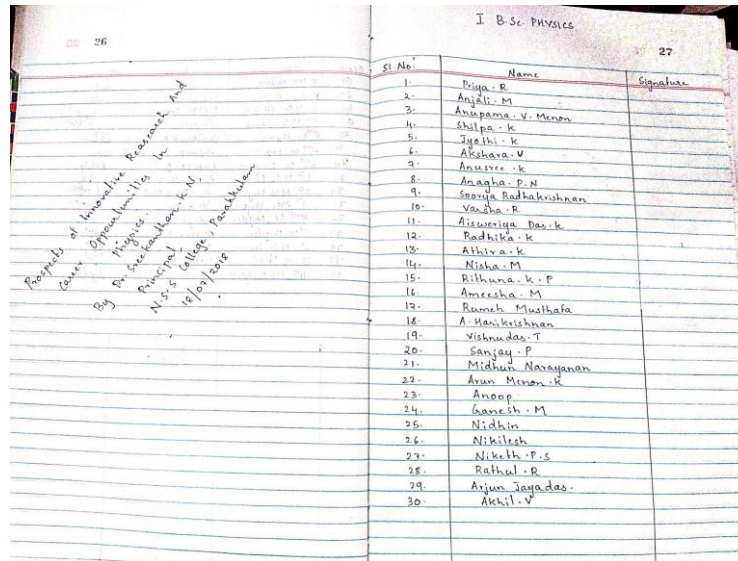 26
Prospects of Innovative Reasearch And
Career Oppourtunities In
Physics.
By Dr. Sreekandhan. K. N.
Principal
N.S.S College, Parakkulam
18/07/2018
I B.Sc PHYSICS
27
Sl.No Name Signature
1. Priya. R
2. Anjali. M
3. Anupama. V. Menon
4. Shilpa. K
5. Jyothi. K
6. Akshara. V
7. Anusree. K
8. Anagha. P. N
9. Soorya Radhakrishnan
10. Varsha. R
11. Aisweriya Das. K
12. Radhika. K
13. Athira. K
14. Nisha. M
15. Rithuna. K. P
16. Ameesha. M
17. Rumeh Musthafa
18. A. Harikrishnan
19. Vishnudas. T
20. Sanjay. P
21. Midhun Narayanan
22. Arun Menon. K
23. Anoop
24. Ganesh. M
25. Nidhin
26. Nikilesh
27. Niketh. P. S
28. Rathul. R
29. Arjun Jayadas.
30. Akhil. V